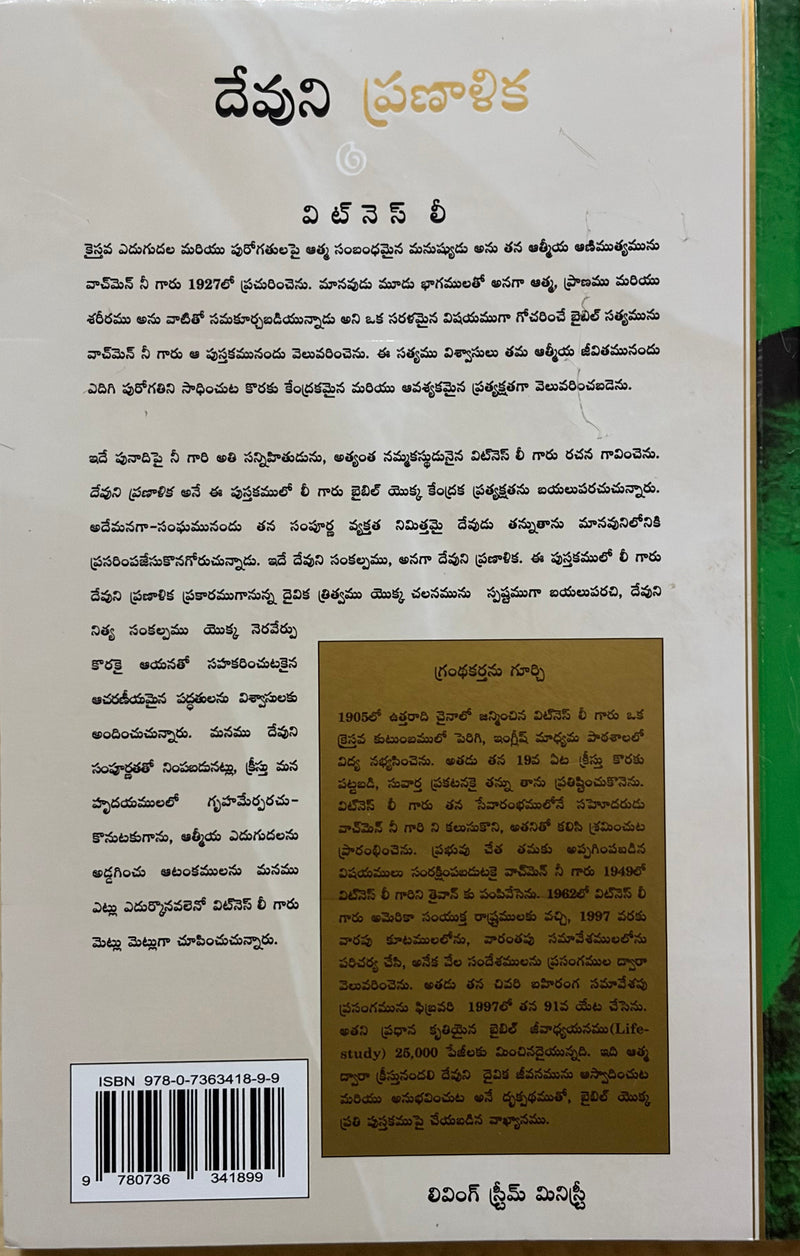 దేవుని ప్రణాళిక
విట్‌నెస్ లీ
క్రైస్తవ ఎదుగుదల మరియు పురోగతులపై ఆత్మ సంబంధమైన మనుష్యుడు అను తన ఆత్మీయ ఆణిముత్యమును
వాచ్‌మెన్ నీ గారు 1927లో ప్రచురించెను. మానవుడు మూడు భాగములతో అనగా ఆత్మ, ప్రాణము మరియు
శరీరము అను వాటితో సమకూర్చబడియున్నాడు అని ఒక సరళమైన విషయముగా గోచరించే బైబిల్ సత్యమును
వాచ్‌మెన్ నీ గారు ఆ పుస్తకమునందు వెలువరించెను. ఈ సత్యము విశ్వాసులు తమ ఆత్మీయ జీవితమునందు
ఎదిగి పురోగతిని సాధించుట కొరకు కేంద్రకమైన మరియు ఆవశ్యకమైన ప్రత్యక్షతగా వెలువరించబడెను.
ఇదే పునాదిపై నీ గారి అతి సన్నిహితుడును, అత్యంత నమ్మకస్థుడునైన విట్‌నెస్ లీ గారు రచన గావించెను.
దేవుని ప్రణాళిక అనే ఈ పుస్తకములో లీ గారు బైబిల్ యొక్క కేంద్రక ప్రత్యక్షతను బయలుపరచుచున్నారు.
అదేమనగా-సంఘమునందు తన సంపూర్ణ వ్యక్తత నిమిత్తమై దేవుడు తన్నుతాను మానవునిలోనికి
ప్రసరింపజేసుకొనగోరుచున్నాడు. ఇదే దేవుని సంకల్పము, అనగా దేవుని ప్రణాళిక. ఈ పుస్తకములో లీ గారు
దేవుని ప్రణాళిక ప్రకారముగానున్న దైవిక త్రిత్వము యొక్క చలనమును స్పష్టముగా బయలుపరచి, దేవుని
నిత్య సంకల్పము యొక్క నెరవేర్పు
కొరకై ఆయనతో సహకరించుటకైన
ఆచరణీయమైన పద్ధతులను విశ్వాసులకు
అందించుచున్నారు. మనము దేవుని
సంపూర్ణతతో నింపబడునట్లు, క్రీస్తు మన
హృదయములలో గృహమేర్పరచు-
కొనుటకుగాను, ఆత్మీయ ఎదుగుదలను
అడ్డగించు ఆటంకములను మనము
ఎట్లు ఎదుర్కొనవలెనో విట్‌నెస్ లీ గారు
మెట్లు మెట్లుగా చూపించుచున్నారు.
గ్రంథకర్తను గూర్చి
1905లో ఉత్తరాది చైనాలో జన్మించిన విట్‌నెస్ లీ గారు ఒక
క్రైస్తవ కుటుంబములో పెరిగి, ఇంగ్లీష్ మాధ్యమ పాఠశాలలో
విద్య నభ్యసించెను. అతడు తన 19వ ఏట క్రీస్తు కొరకు
పట్టబడి, సువార్త ప్రకటనకై తన్ను తాను ప్రతిష్టించుకొనెను.
విట్‌నెస్ లీ గారు తన సేవారంభములోనే సహెూదరుడు
వాచ్‌మెన్ నీ గారి ని కలుసుకొని, అతనితో కలిసి శ్రమించుట
ప్రారంభించెను. ప్రభువు చేత తమకు అప్పగింపబడిన
విషయములు సంరక్షింపబడుటకై వాచ్‌మెన్ నీ గారు 1949లో
విట్‌నెస్ లీ గారిని తైవాన్ కు పంపివేసెను. 1962లో విట్‌నెస్ లీ
గారు అమెరికా సంయుక్త రాష్ట్రములకు వచ్చి, 1997 వరకు
వారపు కూటములలోను, వారంతపు సమావేశములలోను
పరిచర్య చేసి, అనేక వేల సందేశములను ప్రసంగముల ద్వారా
వెలువరించెను. అతడు తన చివరి బహిరంగ సమావేశపు
ప్రసంగమును ఫిబ్రవరి 1997లో తన 91వ యేట చేసెను.
అతని ప్రధాన కృతియైన బైబిల్ జీవాధ్యయనము(Life-
study) 25,000 పేజీలకు మించినదైయున్నది. ఇది ఆత్మ
ద్వారా క్రీస్తునందలి దేవుని దైవిక జీవనమును ఆస్వాదించుట
మరియు అనుభవించుట అనే దృక్పథముతో, బైబిల్ యొక్క
ప్రతి పుస్తకముపై చేయబడిన వాఖ్యానము.
ISBN 978-0-7363418-9-9
9 780736 341899
లివింగ్ స్ట్రీమ్ మినిస్ట్రీ